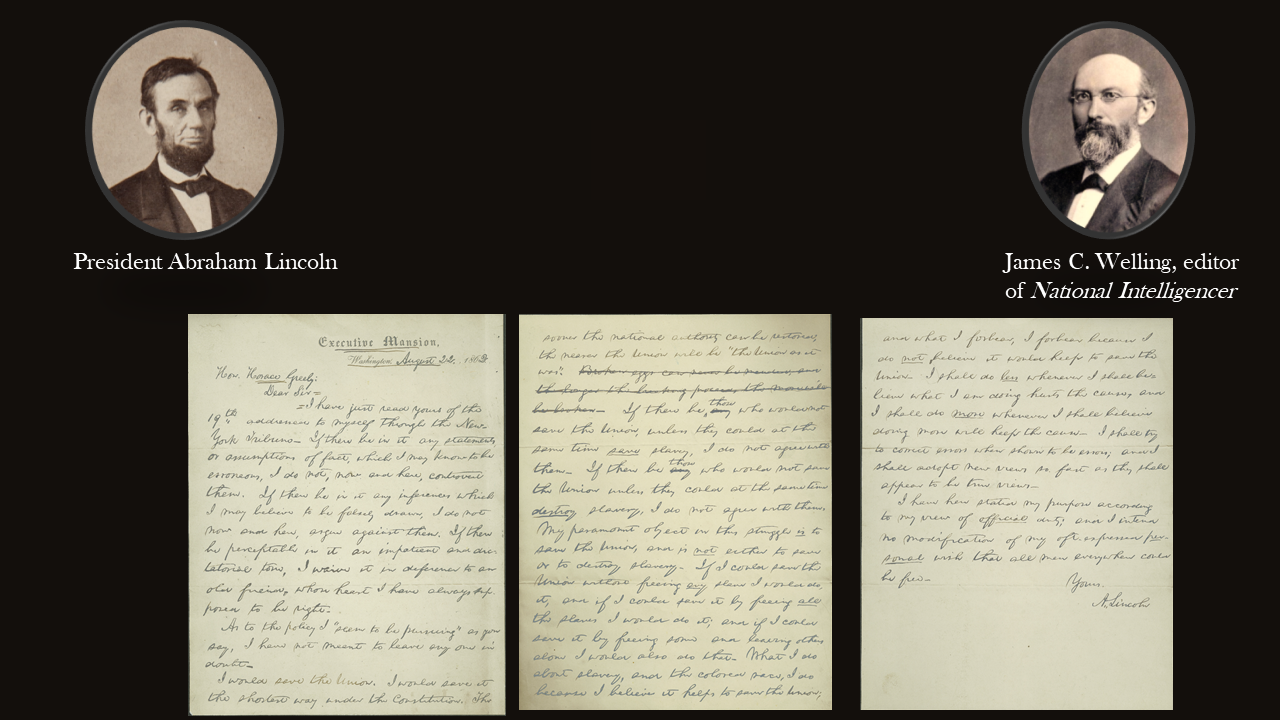 President Abraham Lincoln
James C. Welling, editor
of National Intelligencer
Executive Mansion,
Washington, August 22, 1862.
Hon. Horace Greely:
Dear Sir=
=I have just read yours of the
19th addressed to myself through the New-
York Tribune= If there be in it any statements,
or assumptions of fact, which I may know to be
erroneous, I do not, now and here, controvert
them. If there be in it any inferences which
I may believe to be falsely drawn, I do not
now and here, argue against them. If there
be perceptable in it an impatient and dic-
tatorial tone, I waive it in deference to an
old friend, whose heart I have always sup-
posed to be right.
As to the policy I "seem to be pursuing" as you
say, I have not meant to leave any one in
doubt=
I would save the Union. I would save it
the shortest way under the Constitution. The
sooner the national authority can be restored;
the nearer the Union will be "the Union as it
was." Broken eggs can never be mended, and
the longer the breaking proceeds the more will
be broken= If there be those who would not
save the Union, unless they could at the
same time save slavery, I do not agree with
them= If there be those who would not save
the Union unless they could at the same time
destroy slavery, I do not agree with them.
My paramount object in this struggle is to
save the Union, and is not either to save
or to destroy slavery= If I could save the
Union without freeing any slave I would do
it, and if I could save it by freeing all
the slaves I would do it; and if I could
save it by freeing some and leaving others
alone I would also do that= What I do
about slavery, and the colored race, I do
because I believe it helps to save the Union;
and what I forbear, I forbear because I
do not believe it would help to save the
Union= I shall do less whenever I shall be-
lieve what I am doing hurts the cause, and
I shall do more whenever I shall believe
doing more will help the cause= I shall try
to correct errors when shown to be errors; and I
shall adopt new views so fast as they shall
appear to be true views=
I have here stated my purpose according
to my view of official duty; and I intend
no modification of my oft-expressed per-
sonal wish that all men everywhere could
be free=
Yours,
A. Lincoln